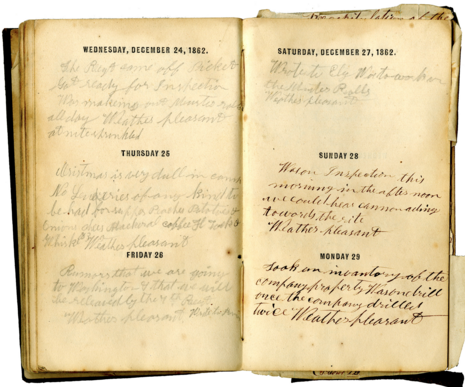 WEDNESDAY, DECEMBER 24, 1862.
The Regt came off Picket
Got ready for Inspection
Was making out Muster rolls
all day Weather pleasant
at nite sprinkled
THURSDAY 25
Christmas is very dull in camp
No luxeries of any kind to
be had for
Onions
Whiskey Weather pleasant
FRIDAY 26
Rumors that we are going
to Washington & that we will
be releived by the Regt
Weather pleasant
SATURDAY, DECEMBER 27, 1862.
Wrote to Ely
the Muster Rolls
Weather pleasant
SUNDAY 28
Was on Inspection this
morning in the after noon
we could hear cannonading
towards the
Weather pleasant
MONDAY 29
Took an inventory of the
company property Was on drill
once the company drilled
twice Weather pleasant